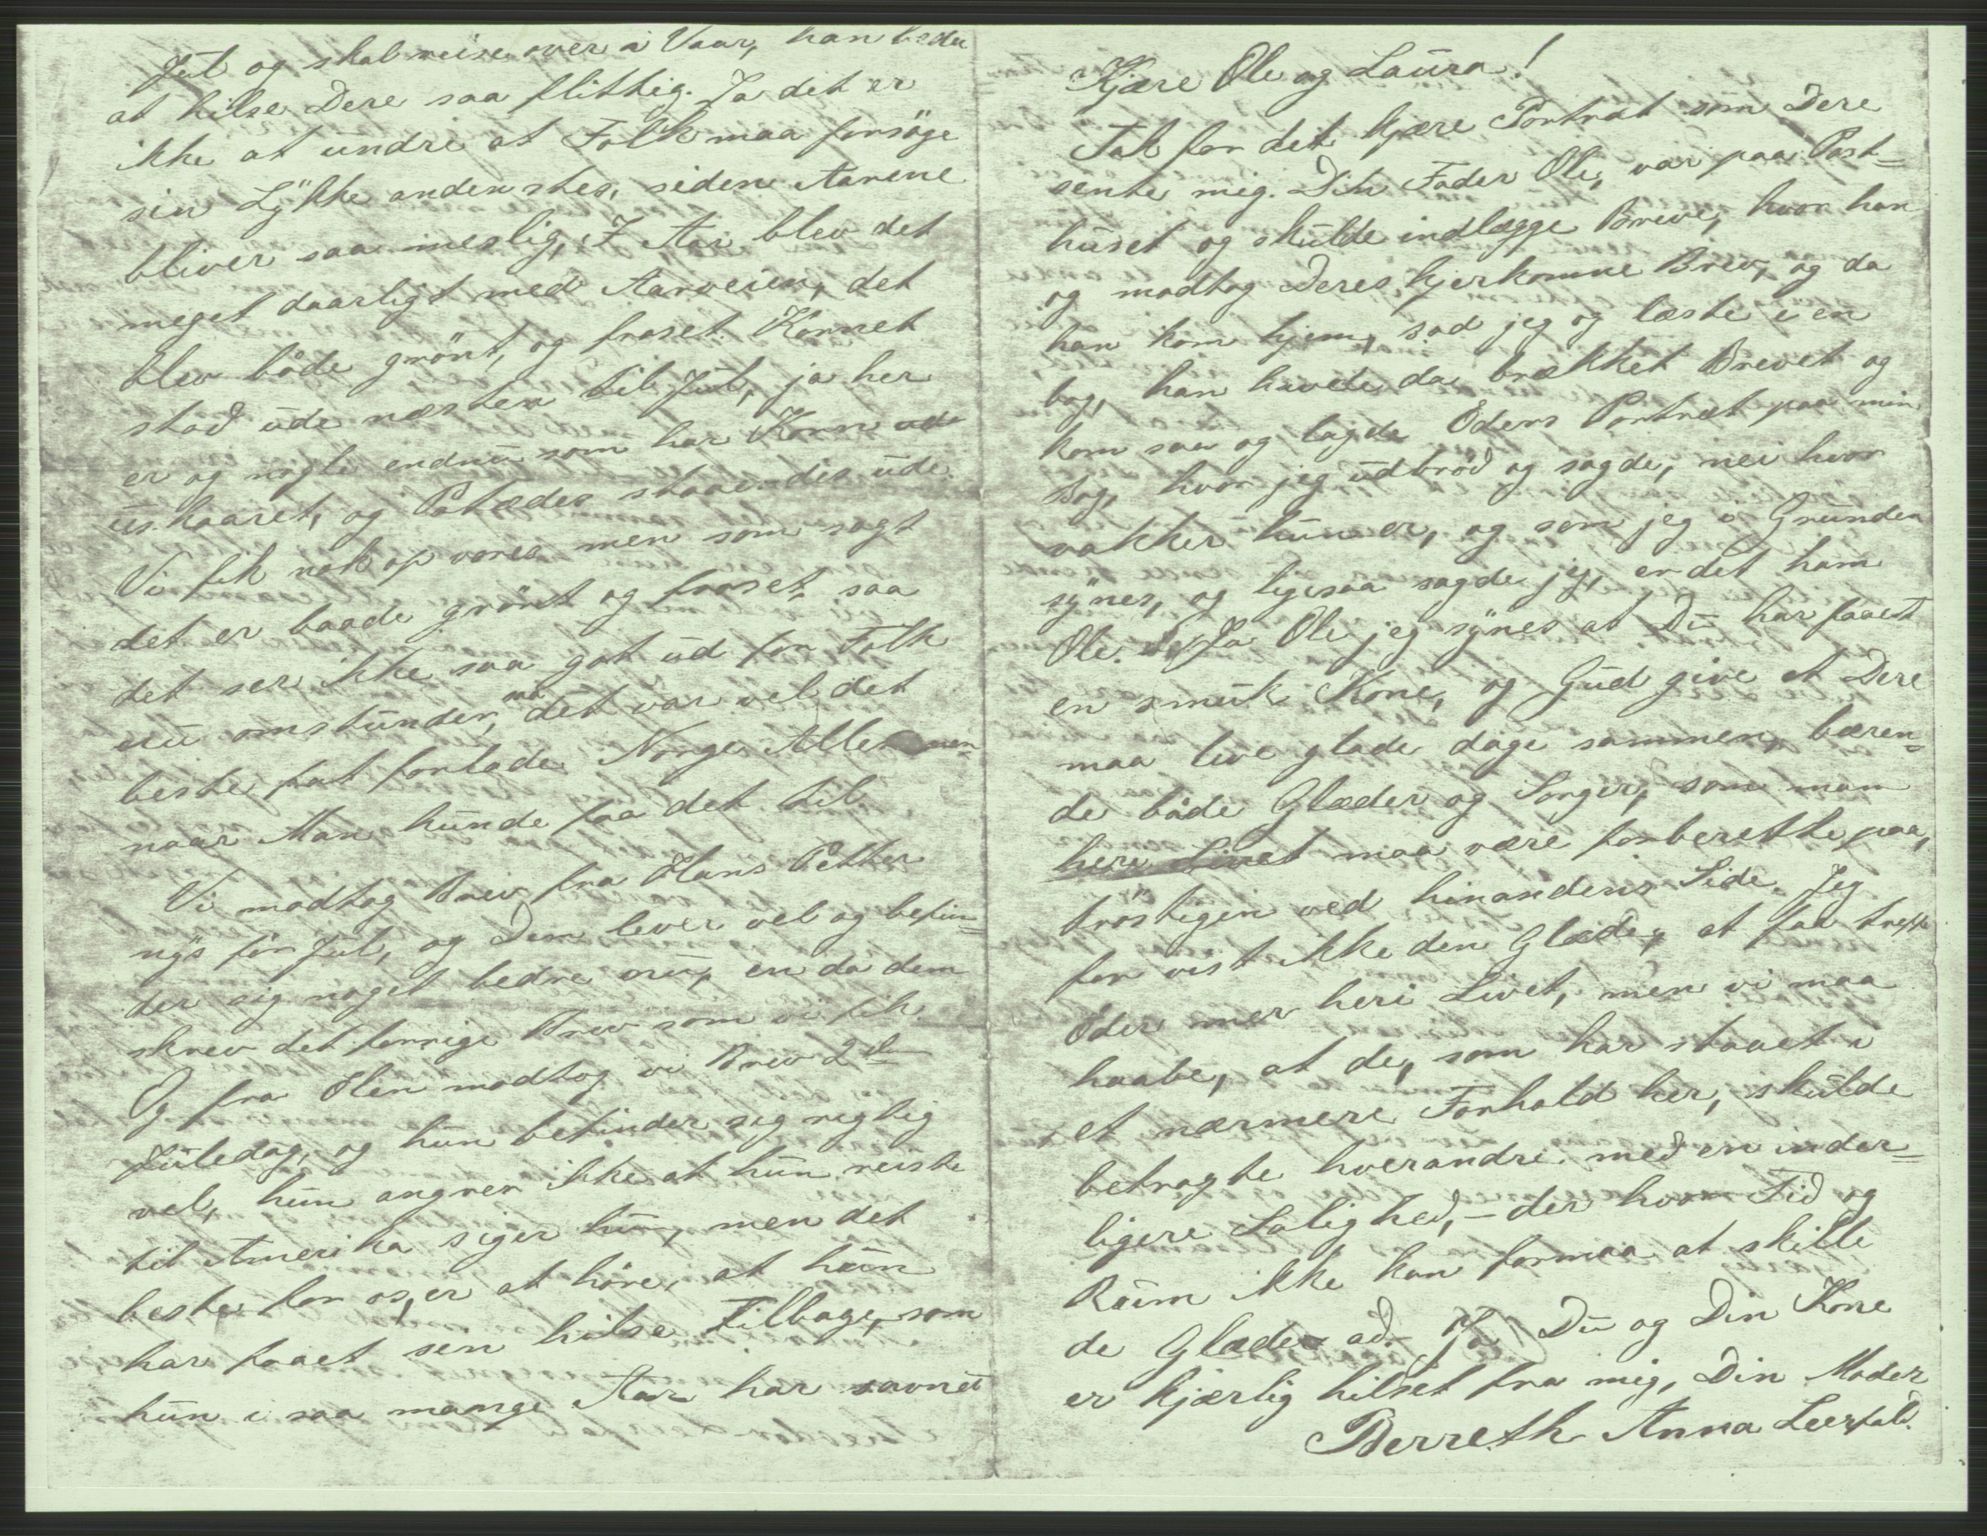 Jul og skal reise over i Vaar, han beder
at hilse Dere saa flittig. Ja det er
ikke at undre at Folk maa forsöge
sin Lÿkke andenstes, siden Aarene
bliver saa meslig, I Aar blev det
meget daarligt med Aarveien, det
blev både grönt, og froset. Kornet
stod ude næsten til Jul, ja her
er og nogle endnu som har Korn
uskaaret, og Potædes staaendes ude.
Vi fik nok op vores men som sagt
det er baade grönt og froset, saa
det ser ikke saa got ud for Folk
nu omstunder, det var vel det
beste fat forlade Norge Alle
naar Man kunde faa det til.
Vi modtog Brev fra Hans Petter
nÿs för Jul, og Dem lever vel og befin=
der sig noget bedre nu, en da dem
skrev det forrige Brev som vi fik.
Og fra Elen modtog vi Brev 2den
Juledag, og hun befinder sig rigtig
vel, hun angrer ikke at hun reiste
til Amerika siger hun, men det
beste for os, er at höre, at hun
har faaet sen hilse Tilbage, som
hun i saa mange Aar har savnet
Kjære Ole og Laura!
Tak for det kjære Portræt som Dere
sente mig. Din Fader Ole, var paa Post=
huset og skulde indlægge Breve, hvor han
og modtog Deres kjerkomne Brev, og da
han kom hjem, sad jeg og læste i en
bog, han havde da brækket Brevet og
kom saa og lagde Eders Portræt, paa min
Bog, hvor jeg udbröd og sagde, nei hvor
vakker hun er, og som jeg i Grunden
sÿnes, og ligesaa sagde jeg, er det ham
Ole. Ja Ole jeg sÿnes at Du har faaet
en smuk Kone, og Gud give at Dere
maa leve glade dage sammen, bæren=
de både Glæder og Sorger, som man
heri Livet maa være forberette paa,
tröstigen ved hinandens Side. Jeg
for vist ikke den Glæde, at faa træffe
Eder mer heri Livet, men vi maa
haabe, at de, som har staaet i
et nærmere Forhold her, skulde
betragte hverandre med en inder=
ligere Salighed, – der hvor Tid og
Rum ikke kan formaa at skille
de Glade ad. Ja Du og Din Kone
er kjærlig hilset fra mig, Din Moder
Berreth Anna Leerfald.